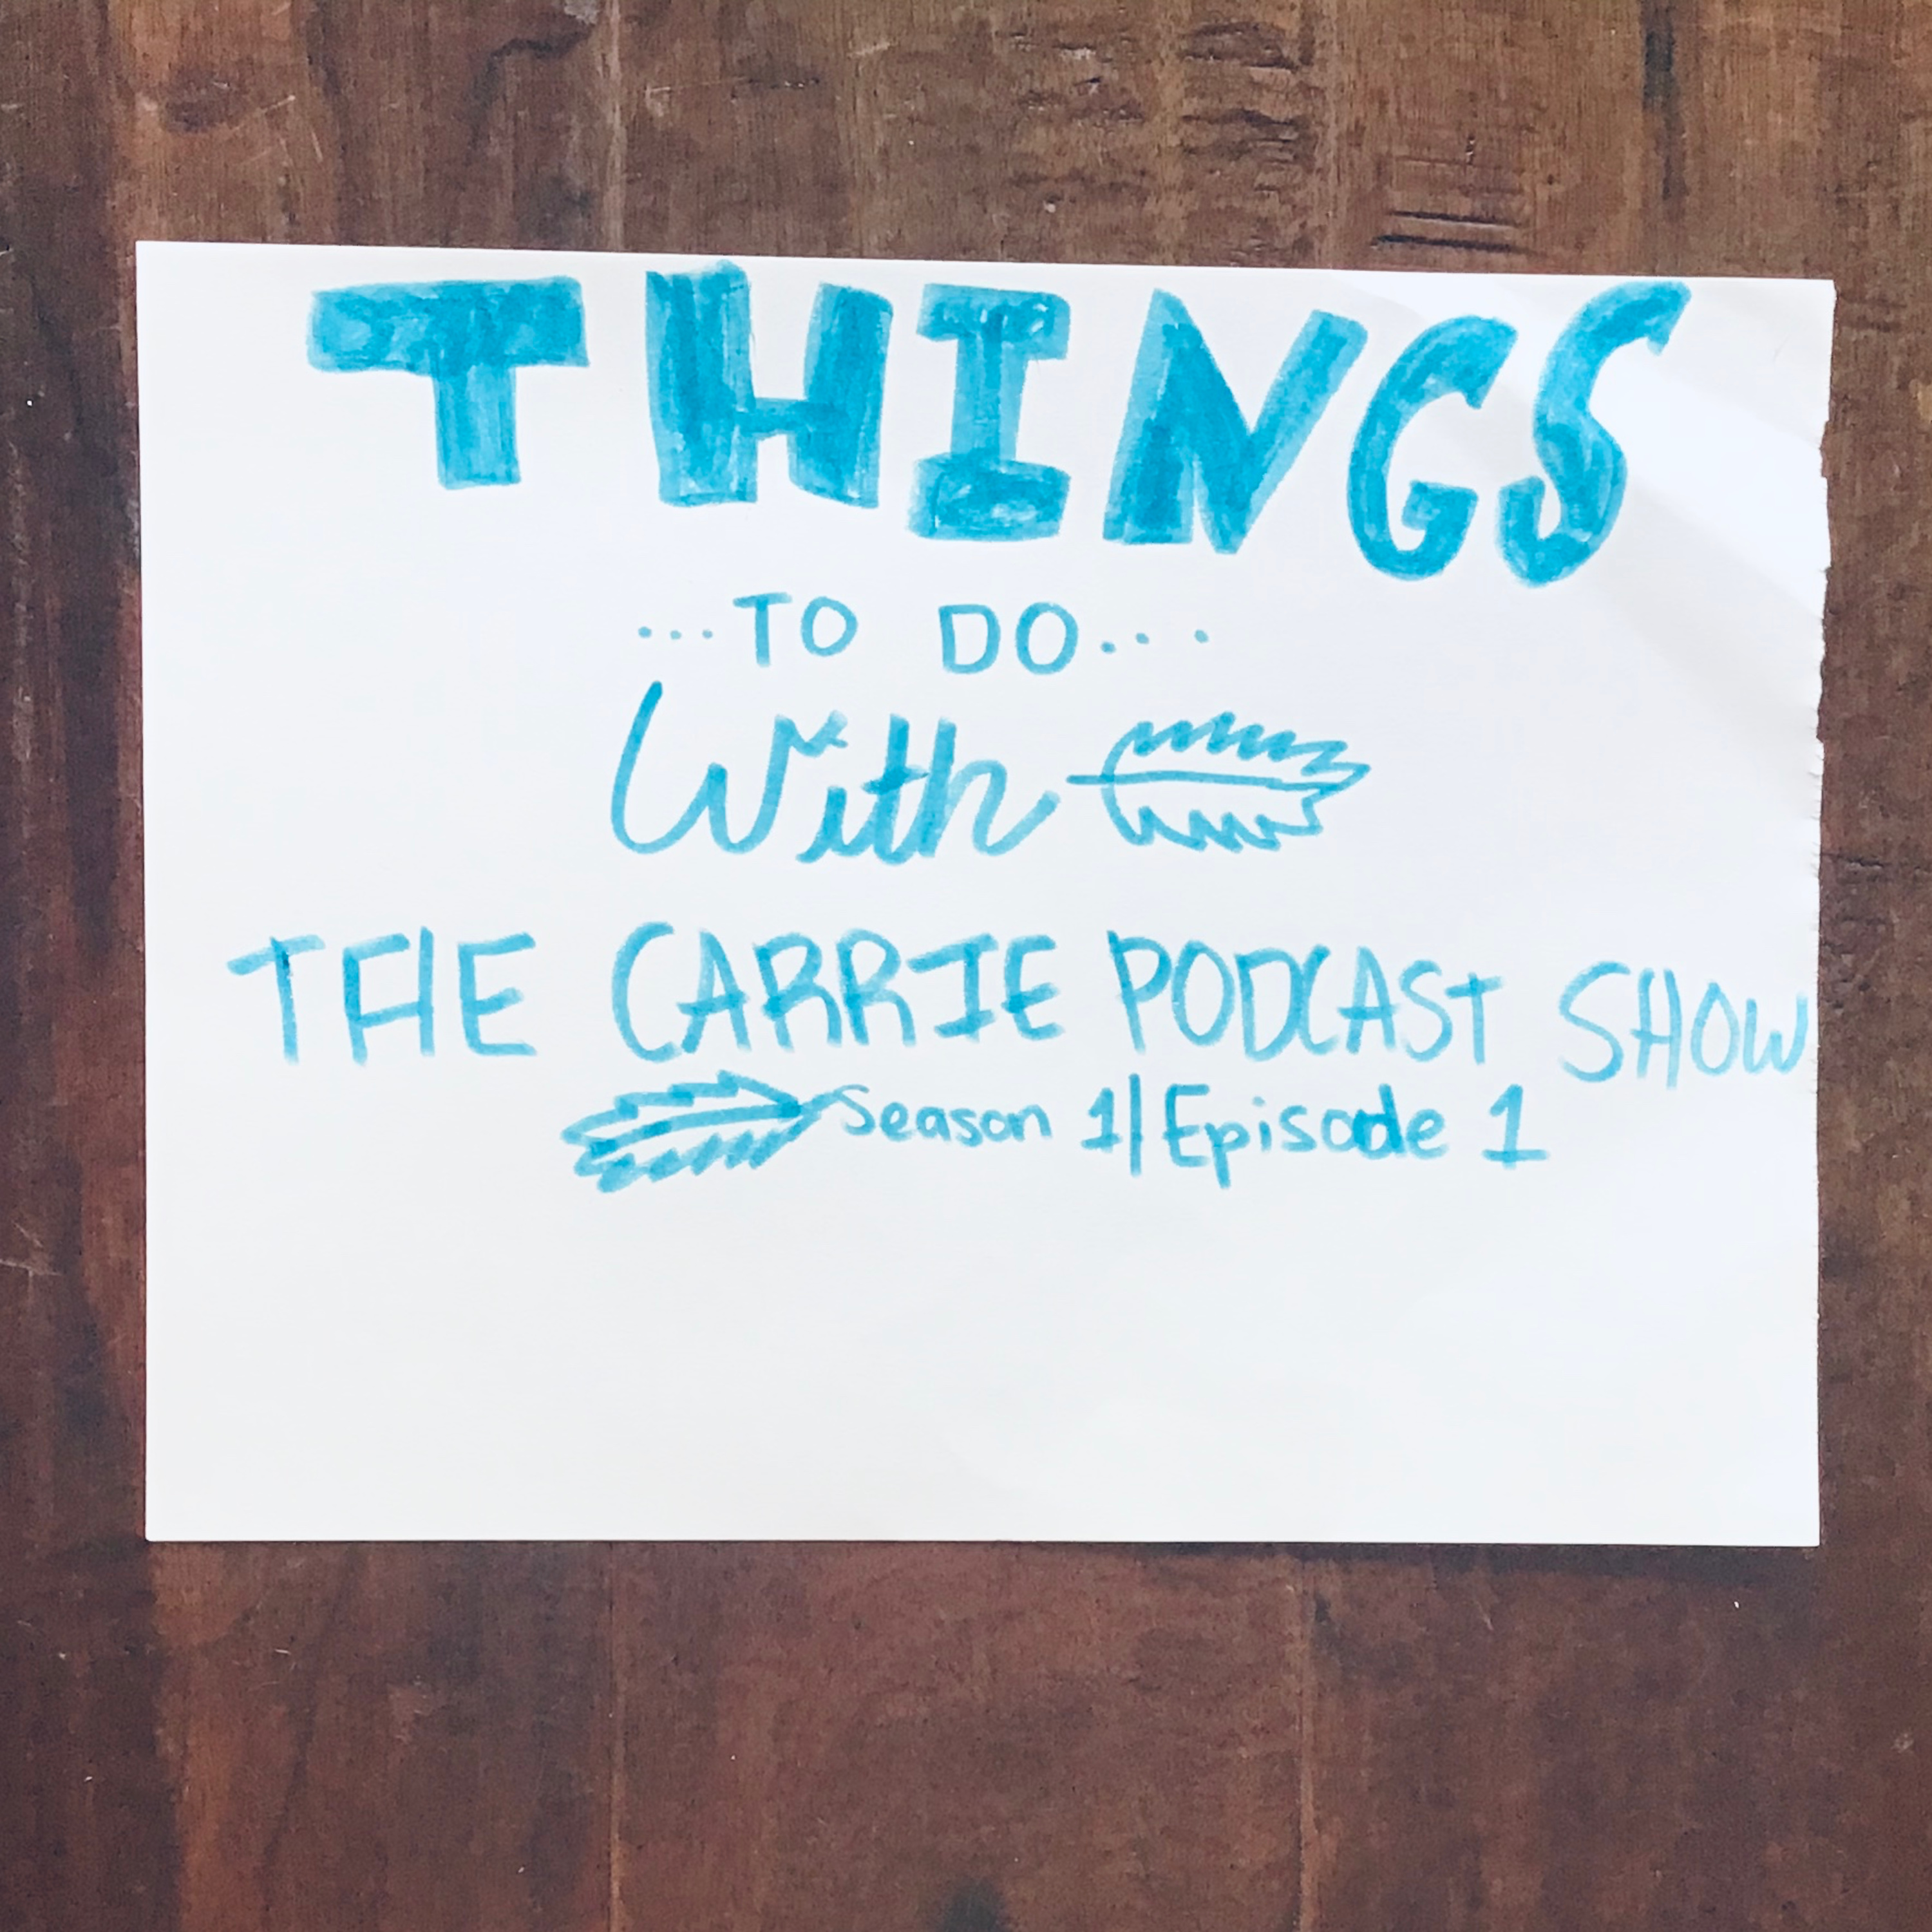 THINGS
...TO DO...
With
THE CARRIE PODCAST SHOW
Season 1|Episode 1